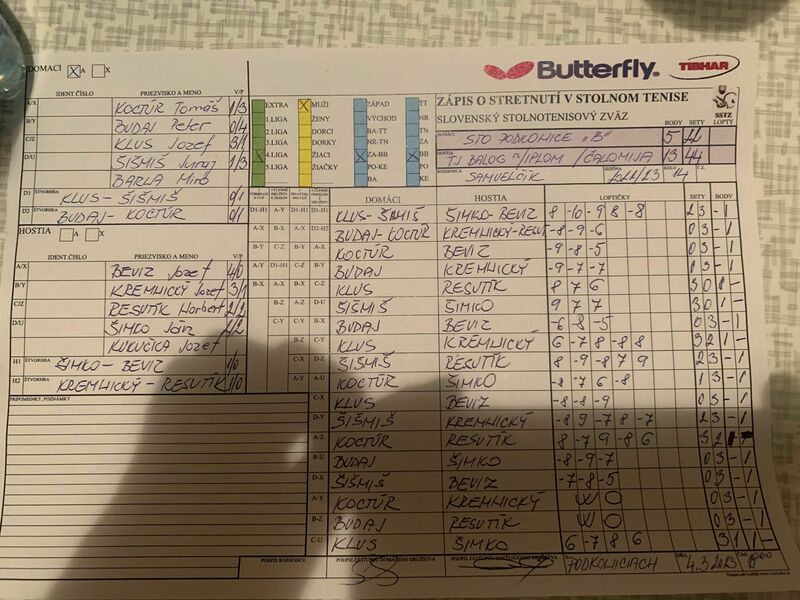 Butterfly
TIBHAR
DOMACI A X
IDENT.ČÍSLO PRIEZVISKO A MENO V/P
A/X KOCTÚR Tomáš 1/3
B/Y BUDAJ Peter 0/4
C/Z KLUS Jozef 3/1
D/U ŠIŠMIŠ Juraj 1/3
BARLA Miro
D1 ŠTVORHRA KLUS - ŠIŠMIŠ 0/1
D2 ŠTVORHRA BUDAJ - KOCTÚR 0/1
HOSTIA A X
IDENT.ČÍSLO PRIEZVISKO A MENO V/P
A/X BEVIZ Jozef 4/0
B/Y KREMNICKÝ Jozef 3/1
C/Z RESUTÍK Norbert 2/2
D/U ŠIMKO Ján 2/2
KUKUČICA Jozef
H1 ŠTVORHRA ŠIMKO - BEVIZ 1/0
H2 ŠTVORHRA KREMNICKÝ - RESUTÍK 1/0
PRIPOMIENKY, POZNÁMKY
EXTRA MUŽI ZÁPAD TT
1.LIGA ŽENY VÝCHOD NR
2.LIGA DORCI BA-TT TN
3.LIGA DORKY BA-NR ZA
4.LIGA ŽIACI ZA-BB BB
5.LIGA ŽIAČKY PO-KE PO
BA KE
ZÁPIS O STRETNUTÍ V STOLNOM TENISE
SLOVENSKÝ STOLNOTENISOVÝ ZVÄZ
SSTZ
DOMÁCI STO PODKONICE "B" BODY 5 SETY LOPTY
HOSTIA 13 44
ROZHODCA SAMUELČÍK SEZÓNA 2022/23 14
DOMÁCI HOSTIA LOPTIČKY SETY BODY
D1-H1 KLUS - ŠIŠMIŠ ŠIMKO - BEVIZ 8 -10 -9 8 -8 2 3 - 1
D2-H2 BUDAJ - KOCTÚR KREMNICKÝ - RESUT -8 -9 -6 0 3 - 1
A-X KOCTÚR BEVIZ -9 -8 -5 0 3 - 1
B-Y BUDAJ KREMNICKÝ -9 -7 -7
C-Z KLUS RESUTÍK 8 7 6 3 0 1 -
D-U ŠIŠMIŠ ŠIMKO 9 7 7 3 0 1 -
B-X BUDAJ BEVIZ -6 -8 -5 0 3 - 1
C-Y KLUS KREMNICKÝ 6 -7 8 -8 8 3 2 1 -
D-Z ŠIŠMIŠ RESUTÍK 8 -9 -8 7 9
A-U KOCTÚR ŠIMKO -8 -7 6 -8 1 3 - 1
C-X KLUS BEVIZ -8 -8 -9 0 3 - 1
D-Y ŠIŠMIŠ KREMNICKÝ -8 9 -7 8 -7 2 3 - 1
A-Z KOCTÚR RESUTÍK 8 -7 9 -8 6 3 2
B-U BUDAJ ŠIMKO -8 -9 -7 0 3 - 1
D-X ŠIŠMIŠ BEVIZ -7 -8 -5 0 3 - 1
A-Y KOCTÚR KREMNICKÝ W O 0 3 - 1
B-Z BUDAJ RESUTÍK W O 0 3 - 1
C-U KLUS ŠIMKO 6 -7 8 6 3 1 1 -
PODPIS ROZHODCU PODPIS ZÁSTUPCU DOMÁCEHO DRUŽSTVA PODPIS ZÁSTUPCU HOSŤUJÚCEHO DRUŽSTVA
PODKONICIACH DŇA 4.3.2023